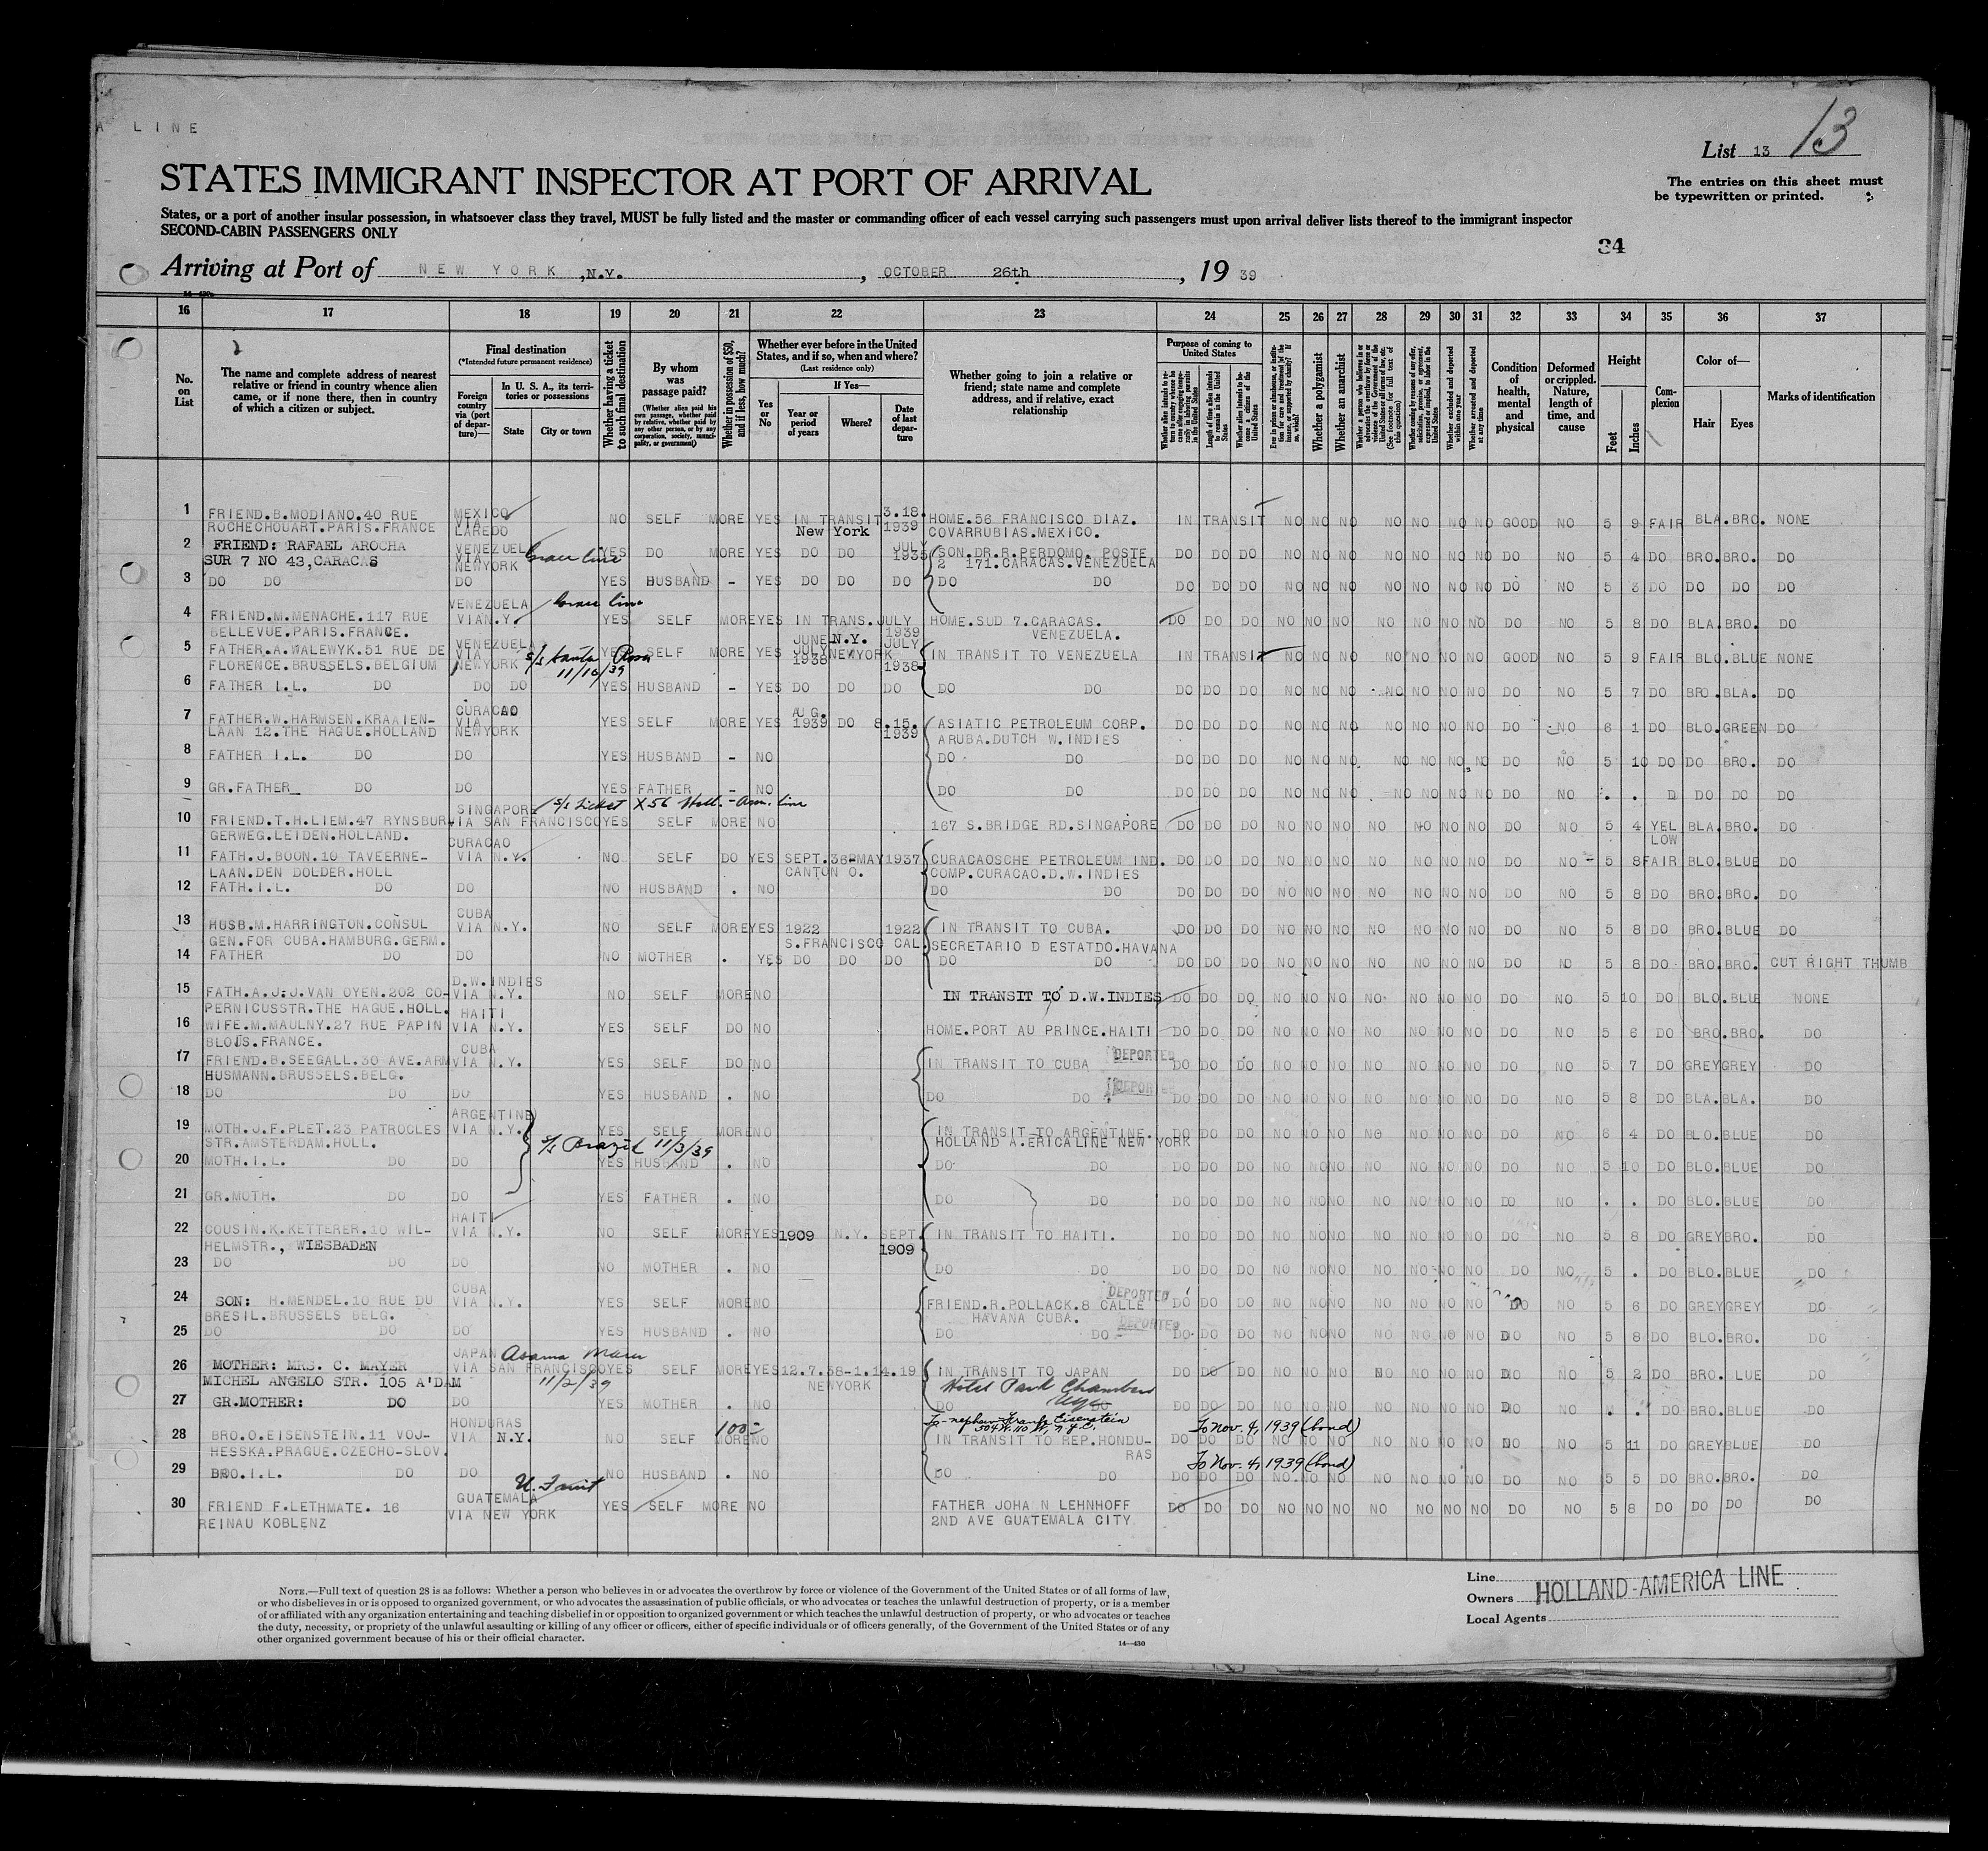 A LINE
List 13 13
STATES IMMIGRANT INSPECTOR AT PORT OF ARRIVAL
The entries on this sheet must
be typewritten or printed.
States, or a port of another insular possession, in whatsoever class they travel, MUST be fully listed and the master or commanding officer of each vessel carrying such passengers must upon arrival deliver lists thereof to the immigrant inspector
SECOND-CABIN PASSENGERS ONLY
34
Arriving at Port of NEW YORK, N.Y., OCTOBER 26th, 19 39
16 17 18 19 20 21 22 23 24 25 26 27 28 29 30 31 32 33 34 35 36 37
No. on List
The name and complete address of nearest relative or friend in country whence alien came, or if none there, then in country of which a citizen or subject.
Final destination
(*Intended future permanent residence)
Foreign country via (port of departure)—
In U. S. A., its territories or possessions
State
City or town
Whether having a ticket to such final destination
By whom was passage paid?
(Whether alien paid his own passage, whether paid by relative, whether paid by any other person, or by any corporation, society, municipality, or government)
Whether in possession of $50, and if less, how much?
Whether ever before in the United States, and if so, when and where?
(Last residence only)
Yes or No
If Yes—
Year or period of years
Where?
Date of last departure
Whether going to join a relative or friend; state name and complete address, and if relative, exact relationship
Purpose of coming to United States
Whether a polygamist
Whether an anarchist
Condition of health, mental and physical
Deformed or crippled. Nature, length of time, and cause
Height
Feet
Inches
Complexion
Color of—
Hair
Eyes
Marks of identification
1 FRIEND.B.MODIANO.40 RUE MEXICO VIA LAREDO NO SELF MORE YES IN TRANSIT 3.18. 1939 HOME.56 FRANCISCO DIAZ. IN TRANSIT NO NO NO NO NO NO NO GOOD NO 5 9 FAIR BLA.BRO. NONE
ROCHECHOUART.PARIS.FRANCE New York COVARRUBIAS.MEXICO.
2 FRIEND: RAFAEL AROCHA VENEZUEL VIA NEWYORK Grace line YES DO MORE YES DO DO JULY 1935 SON.DR.R.PERDOMO. POSTE DO DO DO NO NO NO NO NO NO NO DO NO 5 4 DO BRO.BRO. DO
SUR 7 NO 43,CARACAS 2 171.CARACAS.VENEZUELA
3 DO DO DO YES HUSBAND - YES DO DO DO DO DO DO DO DO NO NO NO NO NO NO NO DO NO 5 3 DO DO DO DO
4 FRIEND.M.MENACHE.117 RUE VENEZUELA VIA N.Y. Grace line YES SELF MORE YES IN TRANS.JULY 1939 HOME.SUD 7.CARACAS. DO DO DO NO NO NO NO NO NO NO DO NO 5 8 DO BLA.BRO. DO
BELLEVUE.PARIS.FRANCE. N.Y. VENEZUELA.
5 FATHER.A.WALEWYK.51 RUE DE VENEZUELA VIA NEWYORK s/s Santa Rosa 11/10/39 YES SELF MORE YES JUNE JULY 1938 NEWYORK JULY 1938 IN TRANSIT TO VENEZUELA IN TRANSIT NO NO NO NO NO NO NO GOOD NO 5 9 FAIR BLO.BLUE NONE
FLORENCE.BRUSSELS.BELGIUM
6 FATHER I.L. DO DO DO YES HUSBAND - YES DO DO DO DO DO DO DO DO NO NO NO NO NO NO NO DO NO 5 7 DO BRO.BLA. DO
7 FATHER.W.HARMSEN.KRAAIEN- CURACAO VIA NEWYORK YES SELF MORE YES AUG. 1939 DO 8.15. 1939 ASIATIC PETROLEUM CORP. DO DO DO NO NO NO NO NO NO NO DO NO 6 1 DO BLO.GREEN DO
LAAN 12.THE HAGUE.HOLLAND ARUBA.DUTCH W.INDIES
8 FATHER I.L. DO DO YES HUSBAND - NO DO DO DO DO DO NO NO NO NO NO NO NO DO NO 5 10 DO DO BRO. DO
9 GR.FATHER DO DO YES FATHER - NO DO DO DO DO DO NO NO NO NO NO NO NO DO NO . . D DO DO DO
10 FRIEND.T.H.LIEM.47 RYNSBUR SINGAPORE VIA SAN FRANCISCO s/s ticket X56 Holl.-Am. line YES SELF MORE NO 167 S.BRIDGE RD.SINGAPORE DO DO DO NO NO NO NO NO NO NO DO NO 5 4 YEL LOW BLA.BRO. DO
GERWEG.LEIDEN.HOLLAND.
11 FATH.J.BOON.10 TAVEERNE- CURACAO VIA N.Y. NO SELF DO YES SEPT.36-MAY1937 CURACAOSCHE PETROLEUM IND. DO DO DO NO NO NO NO NO NO NO DO NO 5 8 FAIR BLO.BLUE DO
LAAN.DEN DOLDER.HOLL CANTON O. COMP.CURACAO.D.W.INDIES
12 FATH.I.L. DO DO NO HUSBAND . NO DO DO DO DO DO NO NO NO NO NO NO NO DO NO 5 8 DO BRO.BRO. DO
13 HUSB.M.HARRINGTON.CONSUL CUBA VIA N.Y. NO SELF MORE YES 1922 1922 IN TRANSIT TO CUBA. DO DO DO NO NO NO NO NO NO NO DO NO 5 8 DO BRO.BLUE DO
GEN.FOR CUBA.HAMBURG.GERM. S.FRANCISCO CAL. SECRETARIO D ESTATDO.HAVANA
14 FATHER DO DO NO MOTHER . YES DO DO DO DO DO DO DO DO NO NO NO NO NO NO NO DO NO 5 8 DO BRO.BRO. CUT RIGHT THUMB
15 FATH.A.J.J.VAN OYEN.202 CO- D.W.INDIES VIA N.Y. NO SELF MORE NO IN TRANSIT TO D.W.INDIES DO DO DO NO NO NO NO NO NO NO DO NO 5 10 DO BLO.BLUE NONE
PERNICUSSTR.THE HAGUE.HOLL.
16 WIFE.M.MAULNY.27 RUE PAPIN HAITI VIA N.Y. YES SELF DO NO HOME.PORT AU PRINCE.HAITI DO DO DO NO NO NO NO NO NO NO DO NO 5 6 DO BRO.BRO. DO
BLOIS.FRANCE.
17 FRIEND.B.SEEGALL.30 AVE.ARM CUBA VIA N.Y. YES SELF DO NO IN TRANSIT TO CUBA DEPORTED DO DO DO NO NO NO NO NO NO NO DO NO 5 7 DO GREY GREY DO
HUSMANN.BRUSSELS.BELG.
18 DO DO DO YES HUSBAND . NO DO DO DEPORTED DO DO DO NO NO NO NO NO NO NO DO NO 5 8 DO BLA.BLA. DO
19 MOTH.J.F.PLET.23 PATROCLES ARGENTINE VIA N.Y. YES SELF MORE NO IN TRANSIT TO ARGENTINE. DO DO DO NO NO NO NO NO NO NO DO NO 6 4 DO BLO.BLUE DO
STR.AMSTERDAM.HOLL. s/s Brazil 11/3/39 HOLLAND A.ERICALINE NEW YORK
20 MOTH.I.L. DO DO YES HUSBAND . NO DO DO DO DO DO NO NO NO NO NO NO NO DO NO 5 10 DO BLO.BLUE DO
21 GR.MOTH. DO DO YES FATHER . NO DO DO DO DO DO NO NO NO NO NO NO NO DO NO . . DO BLO.BLUE DO
22 COUSIN.K.KETTERER.10 WIL- HAITI VIA N.Y. NO SELF MORE YES 1909 N.Y. SEPT. 1909 IN TRANSIT TO HAITI. DO DO DO NO NO NO NO NO NO NO DO NO 5 8 DO GREY BRO. DO
HELMSTR., WIESBADEN
23 DO DO DO NO MOTHER . NO DO DO DO DO DO NO NO NO NO NO NO NO DO NO 5 . DO BLO.BLUE DO
24 SON: H.MENDEL.10 RUE DU CUBA VIA N.Y. YES SELF MORE NO FRIEND.R.POLLACK.8 CALLE DEPORTED DO DO DO NO NO NO NO NO NO NO DO NO 5 6 DO GREY GREY DO
BRESIL.BRUSSELS BELG. HAVANA CUBA.
25 DO DO DO YES HUSBAND . NO DO DO DEPORTED DO DO DO NO NO NO NO NO NO NO DO NO 5 8 DO BLO.BRO. DO
26 MOTHER: MRS. C. MAYER JAPAN VIA SAN FRANCISCO Asama Maru 11/2/39 YES SELF MORE YES 12.7.38-1.14.19 IN TRANSIT TO JAPAN DO DO DO NO NO NO NO NO NO NO DO NO 5 2 DO BRO. LUE DO
MICHEL ANGELO STR. 105 A'DAM NEWYORK Hotel Park Chambers
27 GR.MOTHER: DO DO YES MOTHER . NO DO nyc DO DO DO DO NO NO NO NO NO NO NO DO NO . . DO BRO.BLUE DO
To-nephew-Frank Eisenstein 504 W. 110 St, N.Y.C. To Nov. 4, 1939 (bond)
28 BRO.O.EISENSTEIN.11 VOJ- HONDURAS VIA N.Y. NO SELF 100- MORE NO IN TRANSIT TO REP.HONDU- DO DO DO NO NO NO NO NO NO NO DO NO 5 11 DO GREY BLUE DO
HESSKA.PRAGUE.CZECHO-SLOV. RAS To Nov. 4, 1939 (bond)
29 BRO.I.L. DO DO NO HUSBAND . NO DO DO DO DO DO NO NO NO NO NO NO NO DO NO 5 5 DO BRO.BRO. DO
30 FRIEND F.LETHMATE. 16 GUATEMALA VIA NEW YORK U. Fruit YES SELF MORE NO FATHER JOHA N LEHNHOFF DO DO DO NO NO NO NO NO NO NO DO NO 5 8 DO DO DO DO
REINAU KOBLENZ 2ND AVE GUATEMALA CITY
NOTE.—Full text of question 28 is as follows: Whether a person who believes in or advocates the overthrow by force or violence of the Government of the United States or of all forms of law,
or who disbelieves in or is opposed to organized government, or who advocates the assassination of public officials, or who advocates or teaches the unlawful destruction of property, or is a member
of or affiliated with any organization entertaining and teaching disbelief in or opposition to organized government or which teaches the unlawful destruction of property, or who advocates or teaches
the duty, necessity, or propriety of the unlawful assaulting or killing of any officer or officers, either of specific individuals or of officers generally, of the Government of the United States or of any
other organized government because of his or their official character.
14—430
Line
Owners HOLLAND-AMERICA LINE
Local Agents